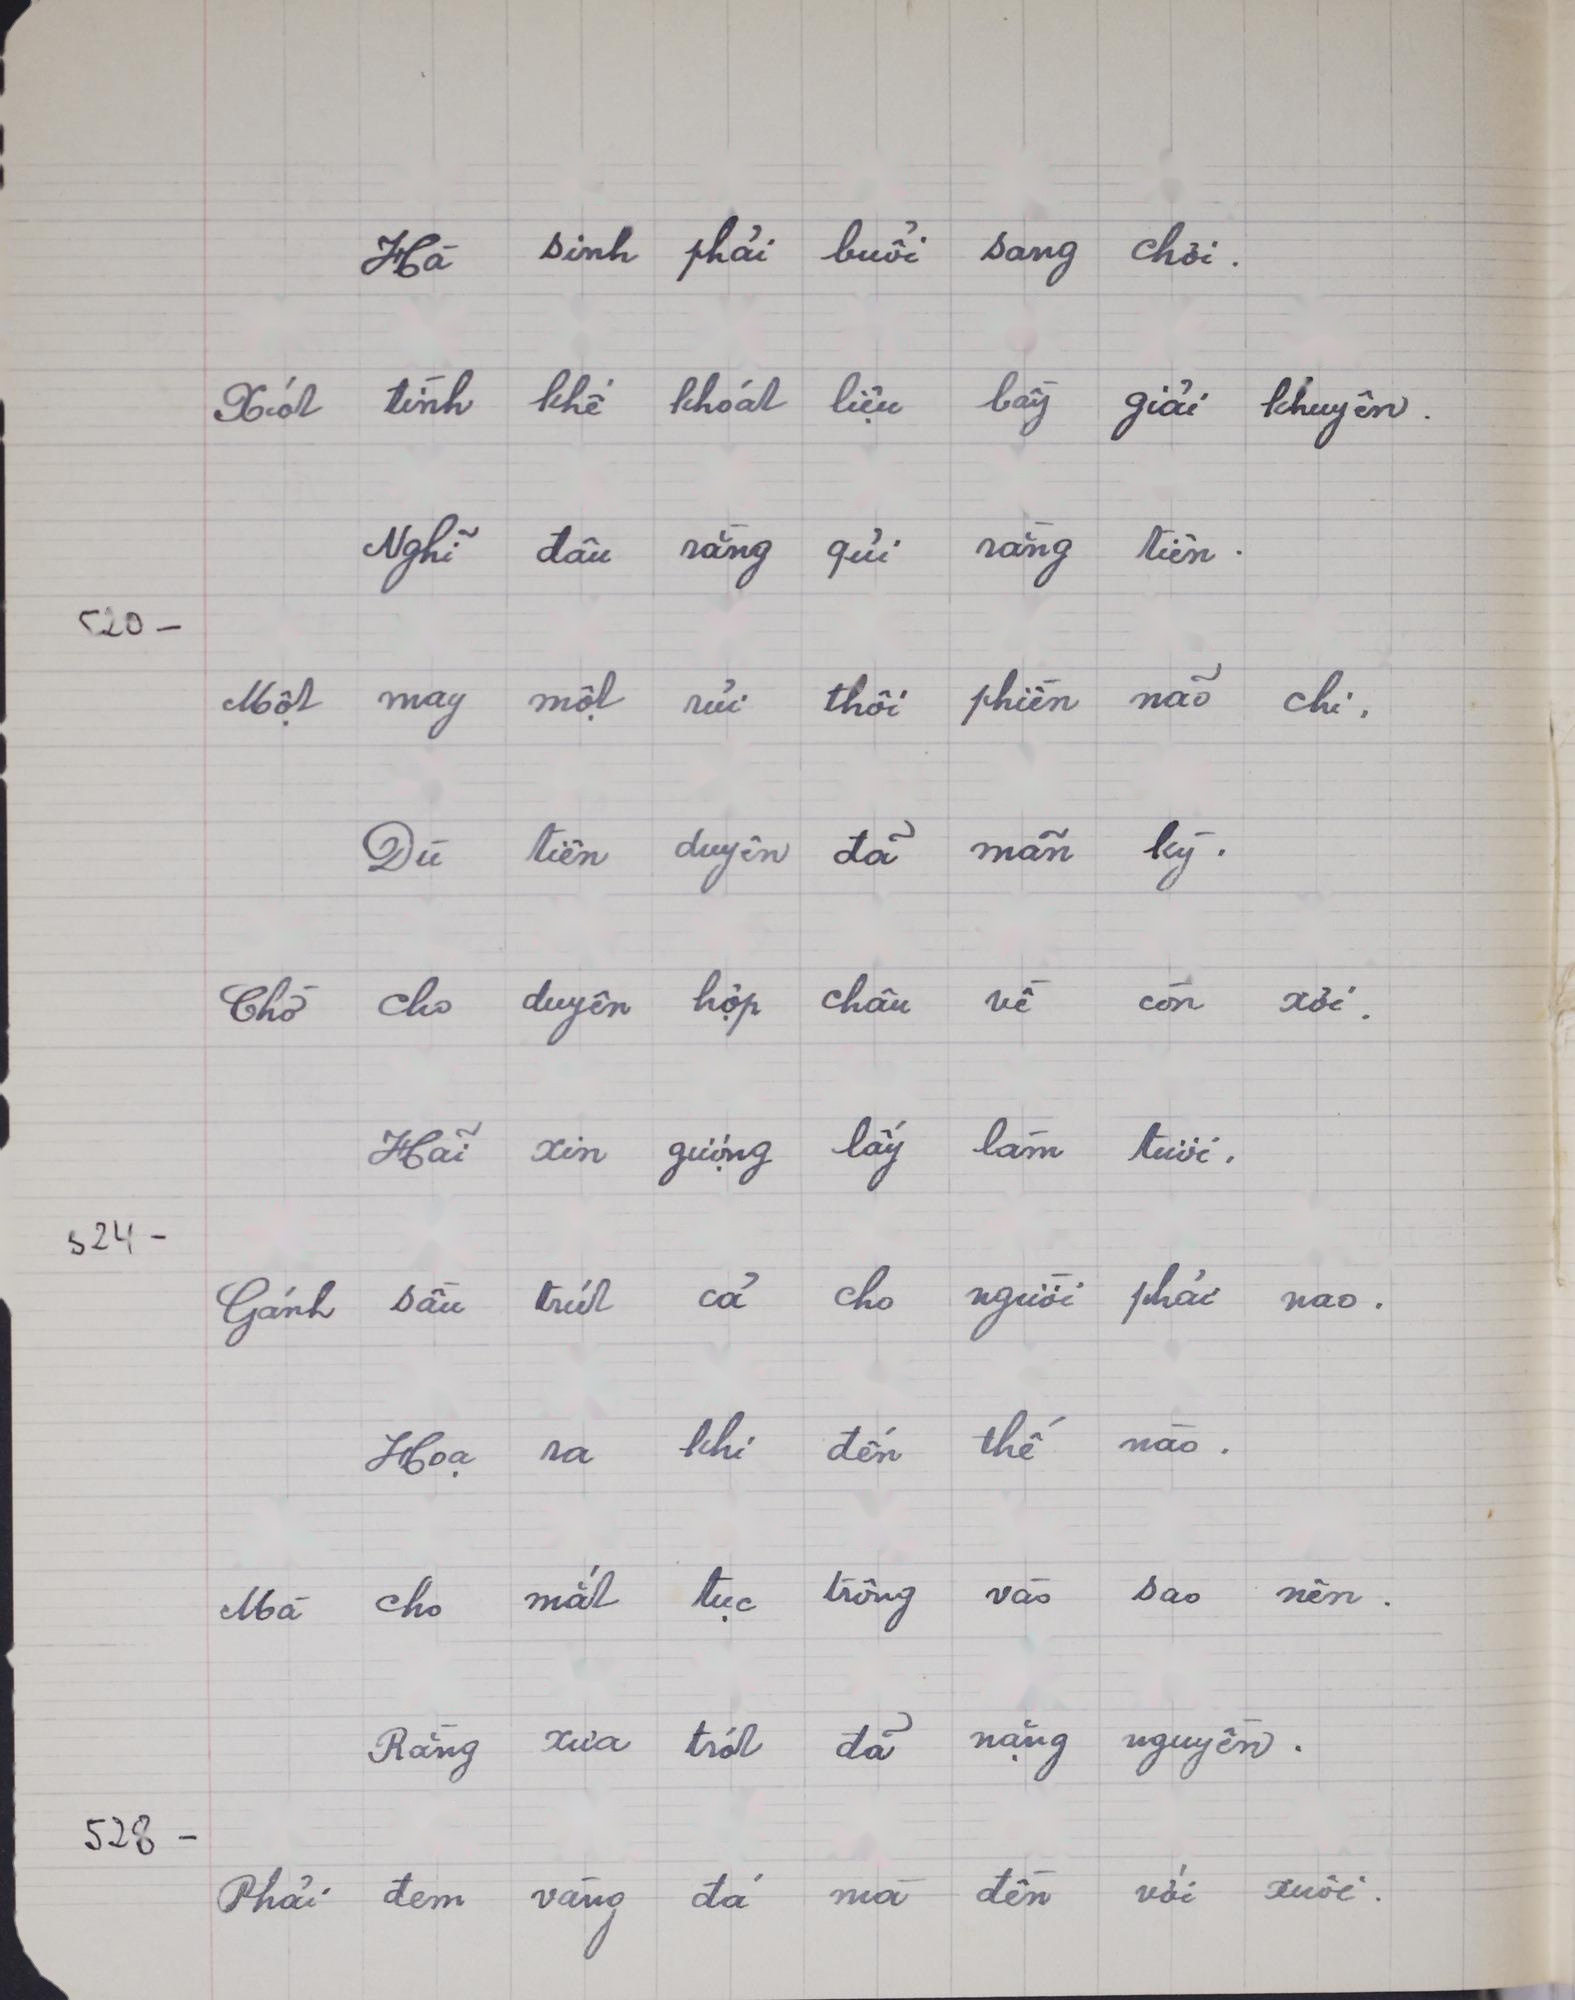 Hà sinh phải buổi sang chơi.
Xót tình khế khoát liệu bầy giải khuyên.
Nghĩ đâu rằng quỉ rằng tiên.
520 —
Một may một rủi thôi phiền não chi.
Dù tiên duyên đã mãn kỳ.
Chờ cho duyên hợp châu về còn xơi.
Hãi xin gượng lấy làm tươi.
524 —
Gánh sầu trút cả cho người phải nao.
Hoạ ra khi đến thế nào.
Mà cho mắt tục trông vào sao nên.
Rằng xưa trót đã nặng nguyền.
528 —
Phải đem vàng đá mà đền với xuôi.